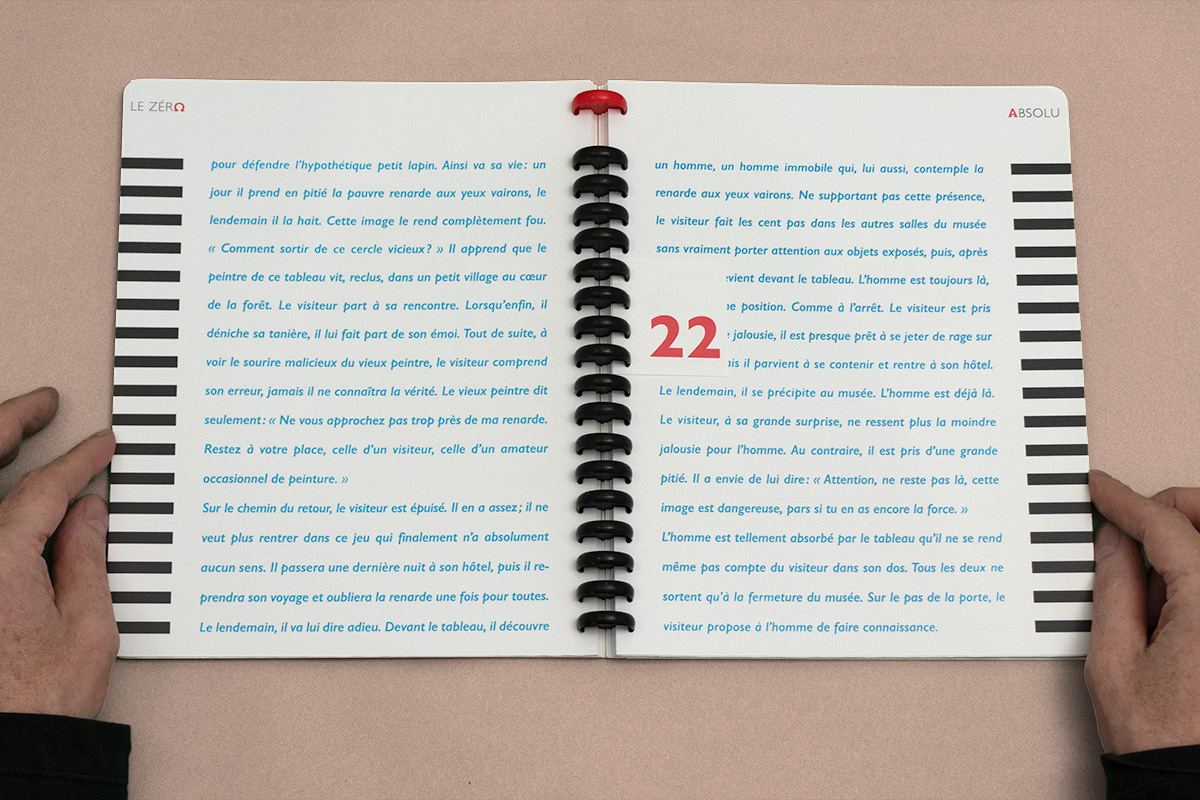 LE ZÉRΩ
pour défendre l'hypothétique petit lapin. Ainsi va sa vie : un
jour il prend en pitié la pauvre renarde aux yeux vairons, le
lendemain il la hait. Cette image le rend complètement fou.
« Comment sortir de ce cercle vicieux ? » Il apprend que le
peintre de ce tableau vit, reclus, dans un petit village au cœur
de la forêt. Le visiteur part à sa rencontre. Lorsqu'enfin, il
déniche sa tanière, il lui fait part de son émoi. Tout de suite, à
voir le sourire malicieux du vieux peintre, le visiteur comprend
son erreur, jamais il ne connaîtra la vérité. Le vieux peintre dit
seulement : « Ne vous approchez pas trop près de ma renarde.
Restez à votre place, celle d'un visiteur, celle d'un amateur
occasionnel de peinture. »
Sur le chemin du retour, le visiteur est épuisé. Il en a assez ; il ne
veut plus rentrer dans ce jeu qui finalement n'a absolument
aucun sens. Il passera une dernière nuit à son hôtel, puis il re-
prendra son voyage et oubliera la renarde une fois pour toutes.
Le lendemain, il va lui dire adieu. Devant le tableau, il découvre
ABSOLU
un homme, un homme immobile qui, lui aussi, contemple la
renarde aux yeux vairons. Ne supportant pas cette présence,
le visiteur fait les cent pas dans les autres salles du musée
sans vraiment porter attention aux objets exposés, puis, après
evient devant le tableau. L'homme est toujours là,
position. Comme à l'arrêt. Le visiteur est pris
22
jalousie, il est presque prêt à se jeter de rage sur
is il parvient à se contenir et rentre à son hôtel.
Le lendemain, il se précipite au musée. L'homme est déjà là.
Le visiteur, à sa grande surprise, ne ressent plus la moindre
jalousie pour l'homme. Au contraire, il est pris d'une grande
pitié. Il a envie de lui dire : « Attention, ne reste pas là, cette
image est dangereuse, pars si tu en as encore la force. »
L'homme est tellement absorbé par le tableau qu'il ne se rend
même pas compte du visiteur dans son dos. Tous les deux ne
sortent qu'à la fermeture du musée. Sur le pas de la porte, le
visiteur propose à l'homme de faire connaissance.